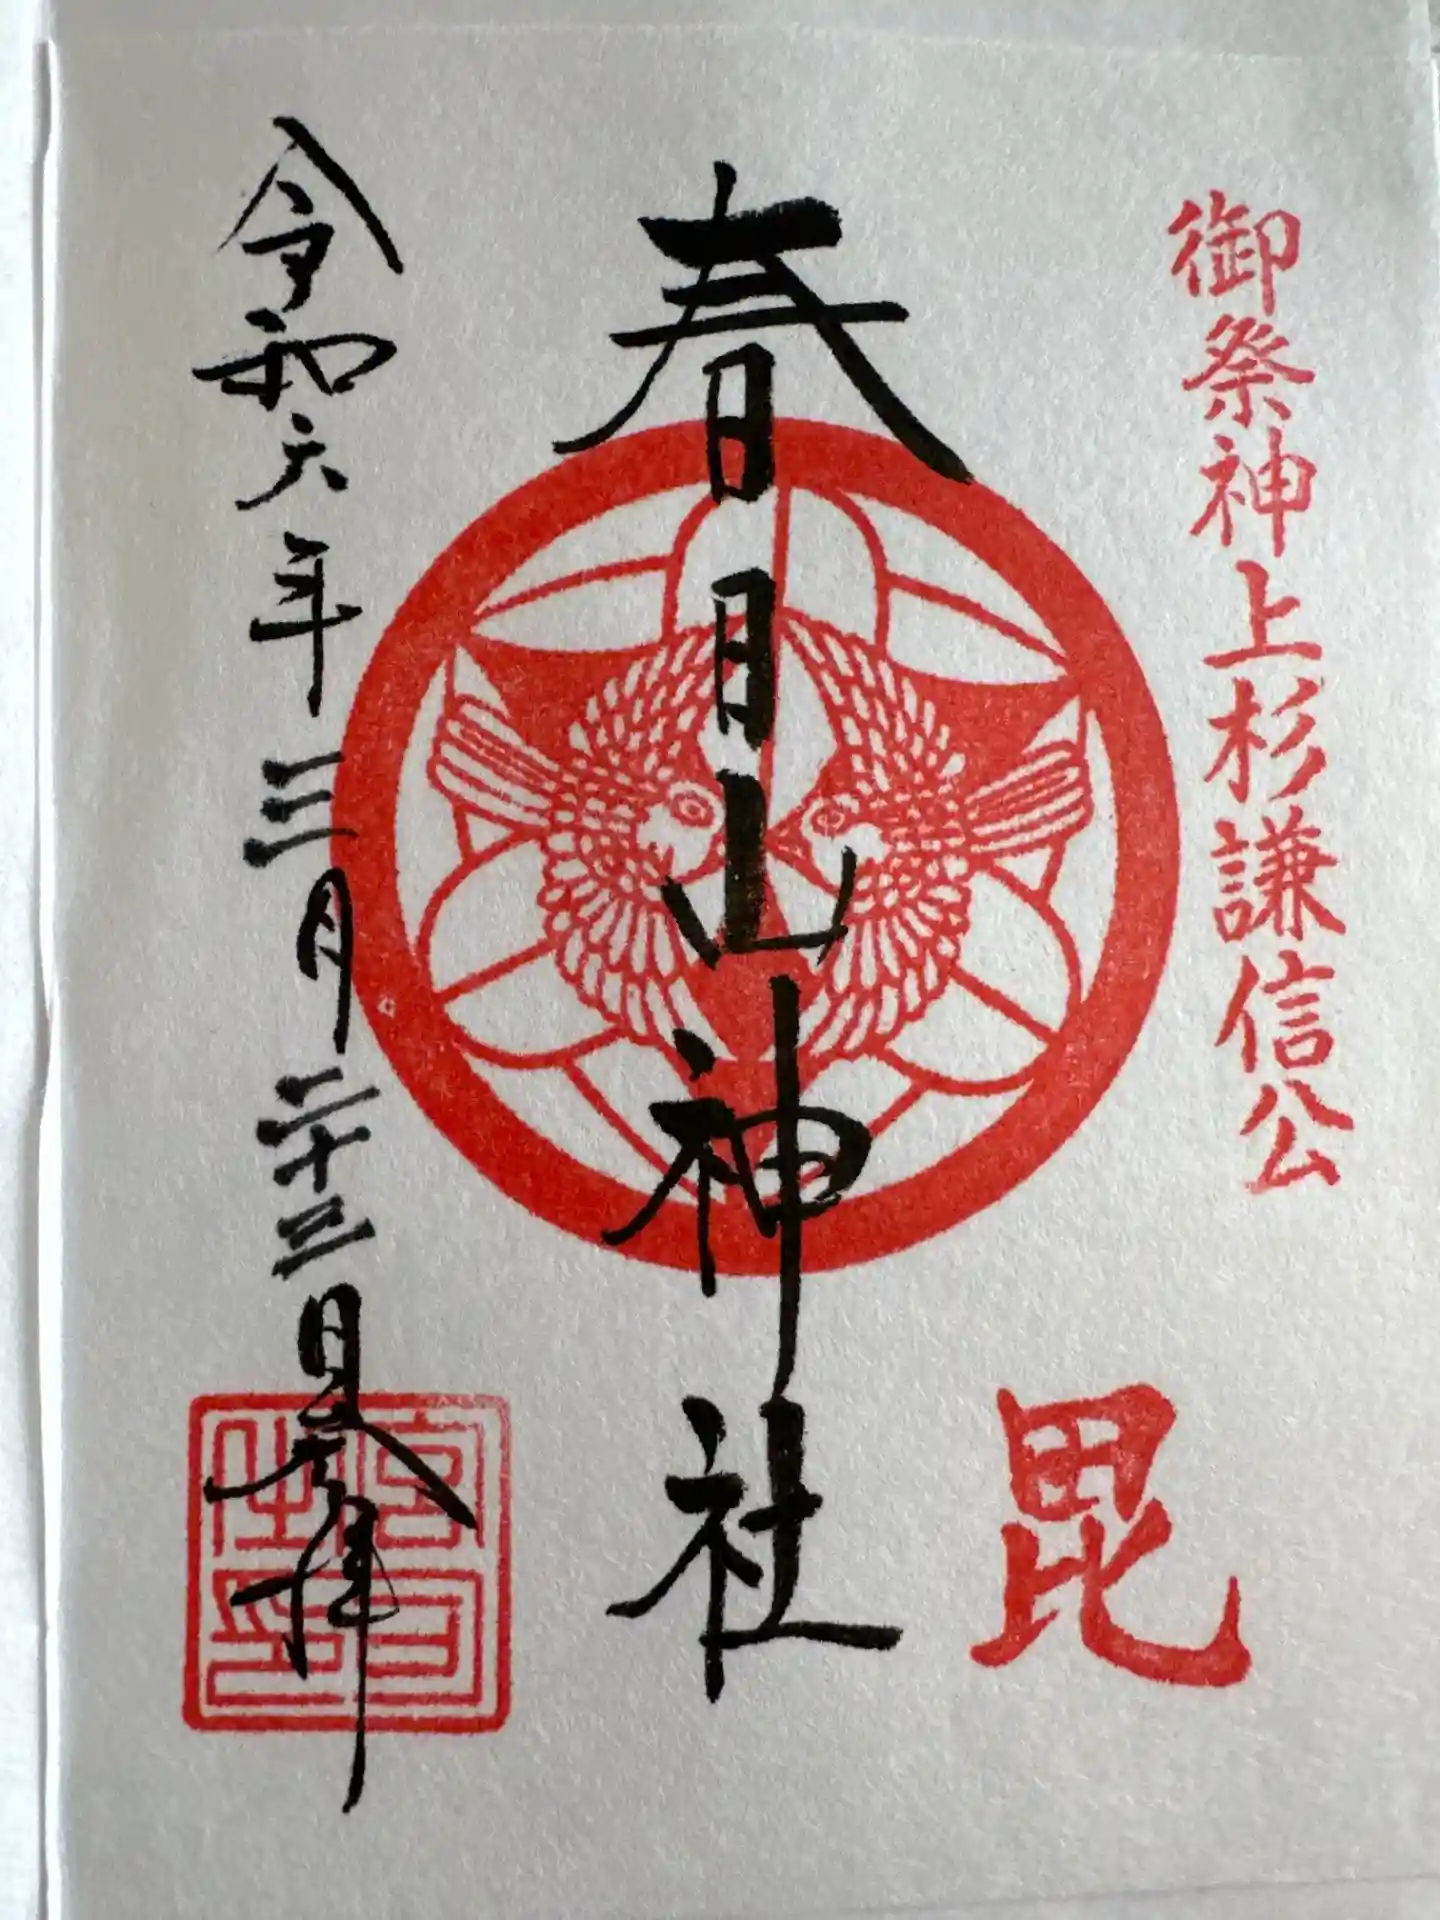 御祭神上杉謙信公
毘
春日山神社
令和六年三月二十三日参拝
宮司之印